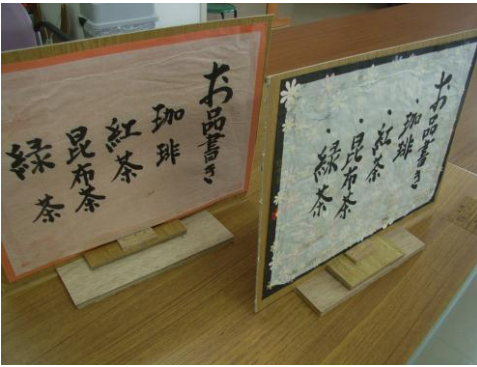 お品書き
珈琲
紅茶
昆布茶
緑茶
お品書き
・珈琲
・紅茶
・昆布茶
・緑茶